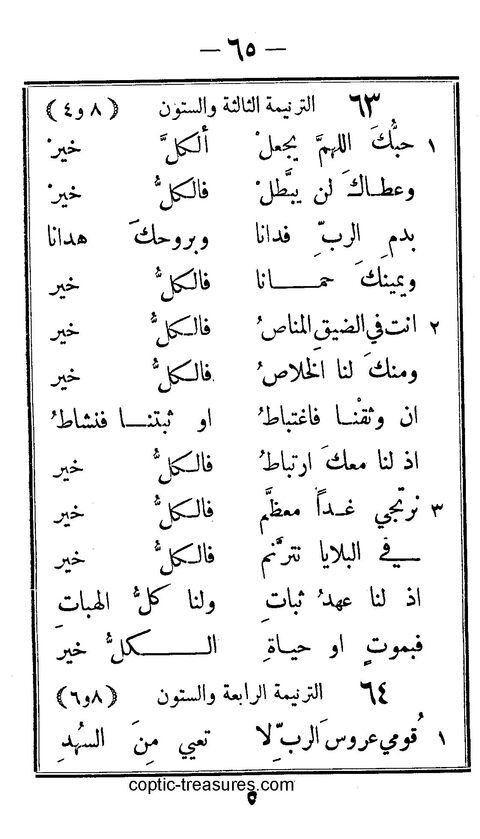 — ٦٥ —
٦٣ الترنيمة الثالثة والستون (٨ و ٤)
١ حبُّكَ اللهمَّ يجعلْ ألكلَّ خيرْ
وعطاكَ لن يبَّطلْ فالكلُّ خيرْ
بدمِ الربِّ فدانا وبروحكَ هدانا
ويمينكَ حمانا فالكلُّ خير
٢ انت في الضيقِ المناصُ فالكلُّ خير
ومنكَ لنا الخلاصُ فالكلُّ خير
ان وثقْنا فاغتباطُ او ثبتنا فنشاطُ
اذ لنا معكَ ارتباطُ فالكلُّ خير
٣ نرتجي غداً معظَّم فالكلُّ خير
في البلايا نترنَّم فالكلُّ خير
اذ لنا عهدُ ثباتِ ولنا كلُّ الهباتِ
فبموتٍ او حياةِ الكلُّ خير
٦٤ الترنيمة الرابعة والستون (٨ و ٦)
١ قُومي عروسَ الربِّ لا تعيي مِنَ السهُدِ
coptic-treasures.com
٥